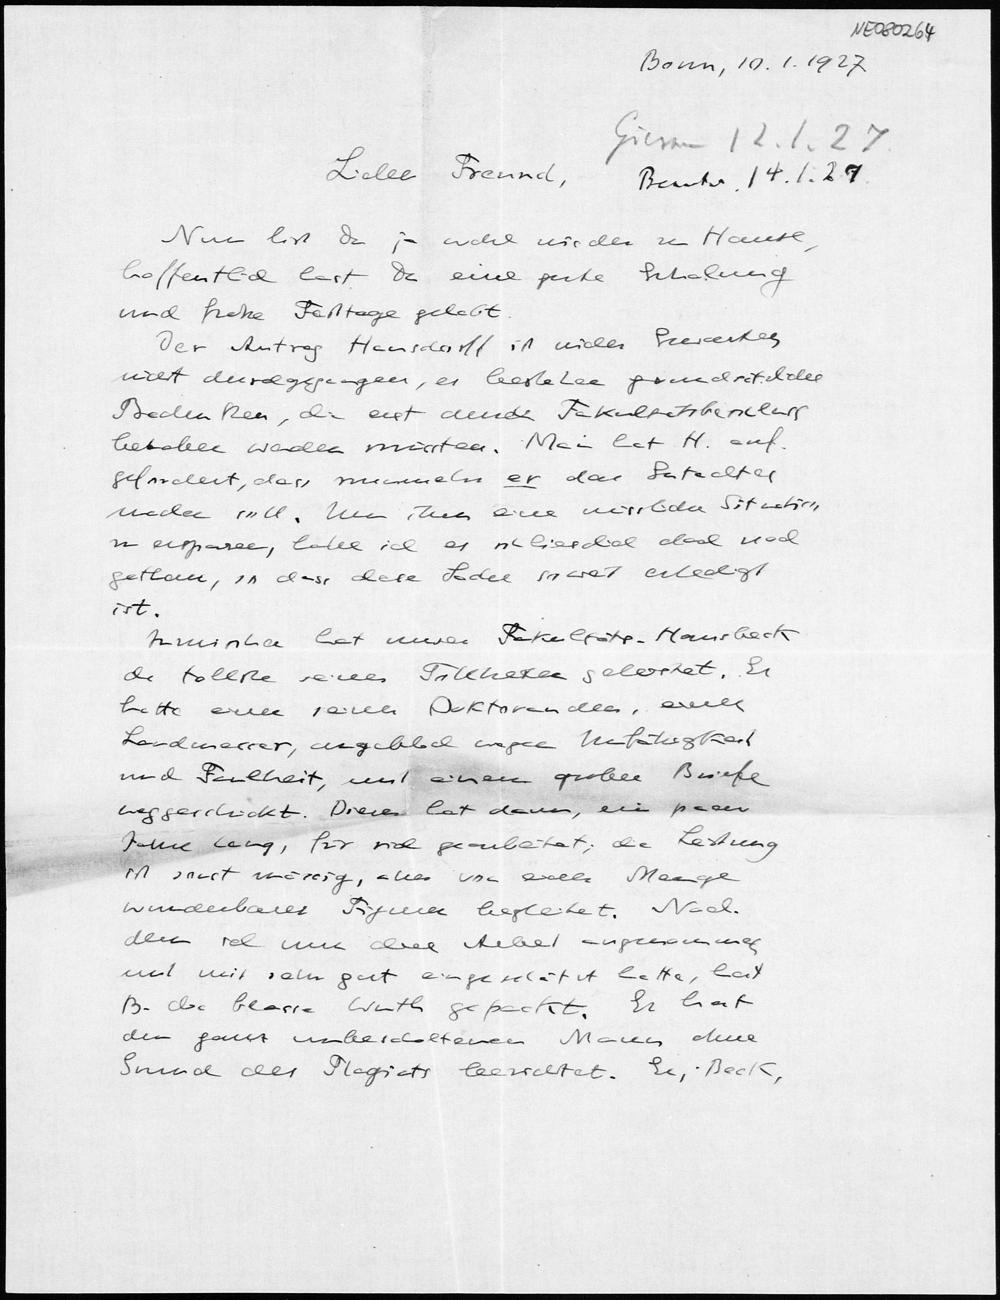 NE080264
Bonn, 10.1.1927
Giessen 12.1.27
14.1.27
Lieber Freund,
Nun bist Du ja wohl wieder zu Hause,
hoffentlich hast Du eine gute Erholung
und frohe Festtage gehabt.
Der Antrag Hausdorff ist wider Erwarten
nicht durchgegangen, es bestehen grundsätzliche
Bedenken, die erst durch Fakultätsbeschluss
behoben werden müssten. Man hat H. auf-
gefordert, dass nunmehr er das Gutachten
machen soll. Um ihm eine missliche Situation
zu ersparen, habe ich es schliesslich doch noch
gethan, so dass diese Sache soweit erledigt
ist.
Inzwischen hat unser Fakultäts-Hansbeck
die tollste seiner Tollheiten geleistet. Er
hatte einen seiner Doktoranden, einen
Landmesser, angeblich wegen Unfähigkeit
und Faulheit, mit einem groben Briefe
weggeschickt. Dieser hat dann, ein paar
Jahre lang, für sich gearbeitet; die Leistung
ist sonst mässig, aber von einer Menge
wunderbarer Figuren begleitet. Nach-
dem ich nun diese Arbeit angenommen
und mit sehr gut eingeschätzt hatte, hat
B. die blasse Wuth gepackt. Er hat
den ganz unbescholtenen Mann ohne
Grund des Plagiats bezichtet. Er, Beck,